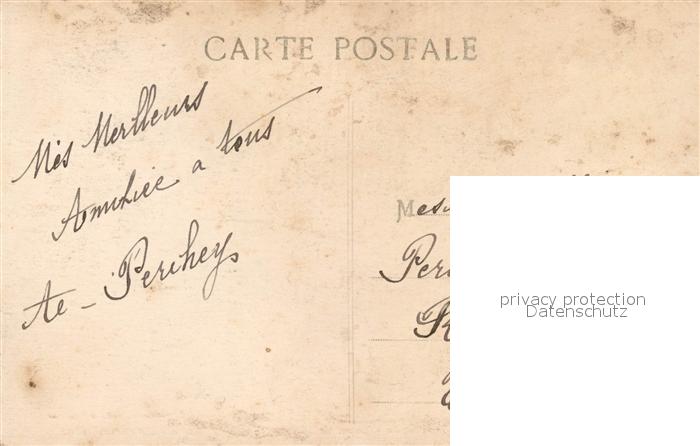 CARTE POSTALE
Mes Meilleurs
Amitiée a tous
Ae - Perchey
M
Per
privacy protection
Datenschutz